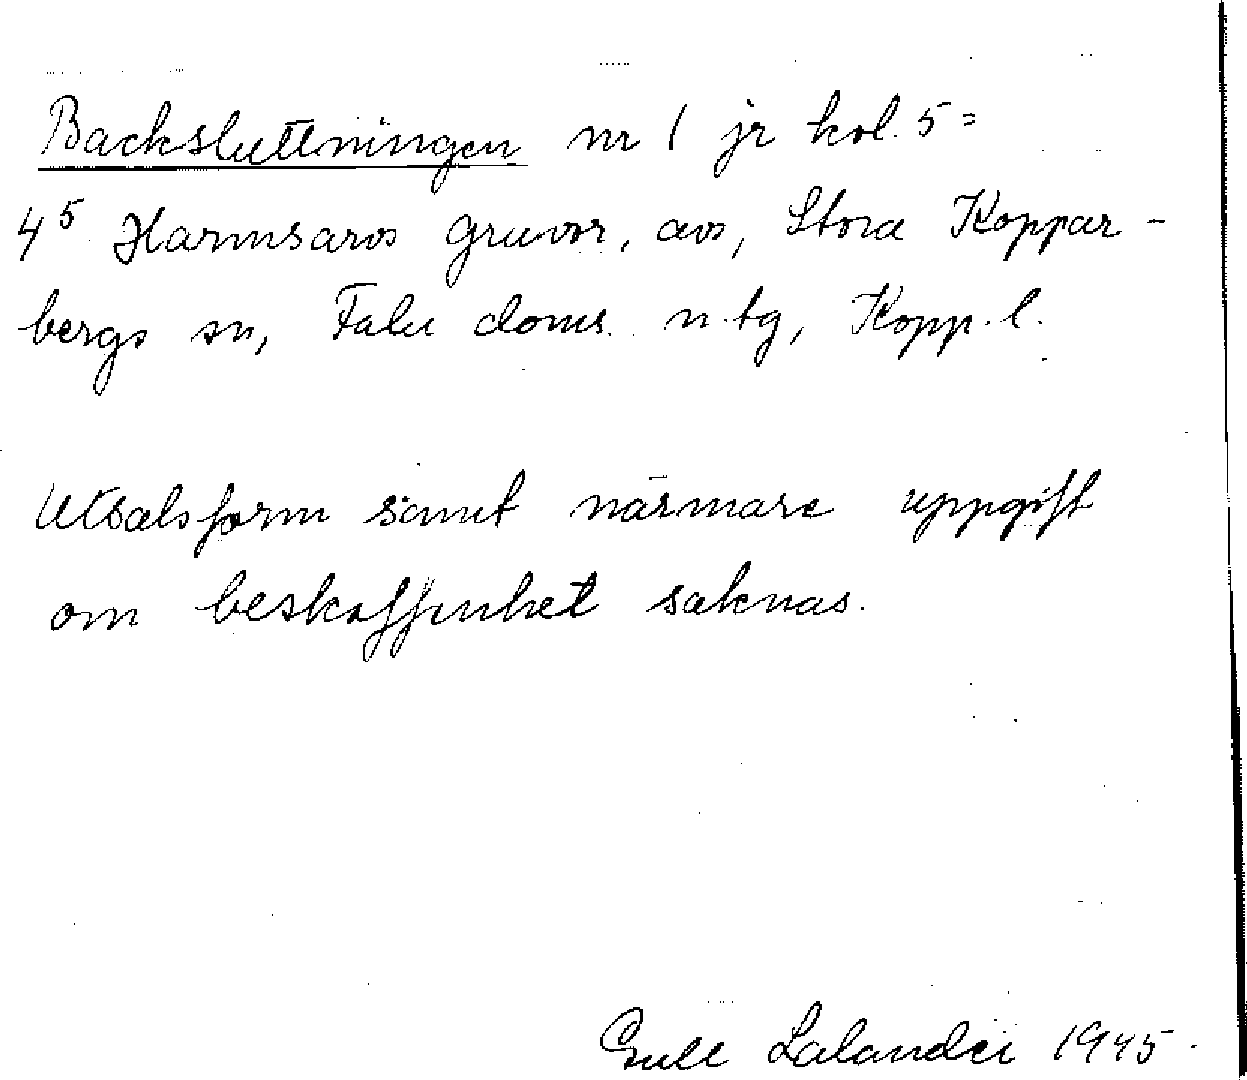 Backsluttningen nr 1 jr kol. 5=
4⁵ Harmsarvs gruvor, avs, Stora Koppar-
bergs sn, Falu doms. n. tg, Kopp. l.
Uttalsform samt närmare uppgift
om beskaffenhet saknas.
Gull Lalander 1945.